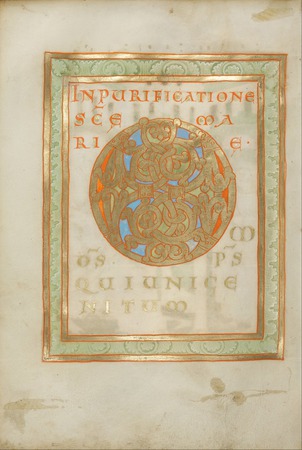 INPURIFICATIONE·
SC̄E MA
RI E·
M
D̄S P̄S
QUIUNIGE
NITUM